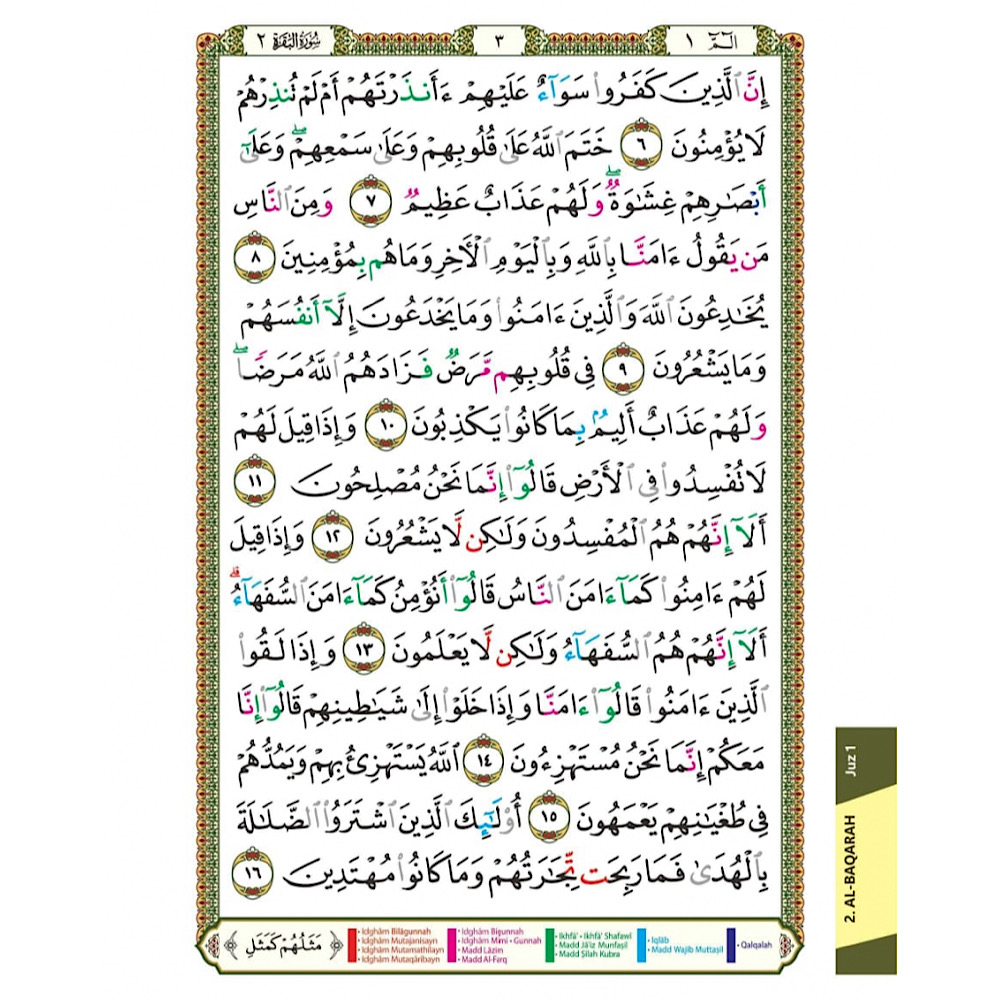 الٓمٓ ١
٣
سُورَةُ الْبَقَرَةِ ٢
إِنَّ ٱلَّذِينَ كَفَرُوا۟ سَوَآءٌ عَلَيْهِمْ ءَأَنذَرْتَهُمْ أَمْ لَمْ تُنذِرْهُمْ
لَا يُؤْمِنُونَ ٦ خَتَمَ ٱللَّهُ عَلَىٰ قُلُوبِهِمْ وَعَلَىٰ سَمْعِهِمْ ۖ وَعَلَىٰٓ
أَبْصَـٰرِهِمْ غِشَـٰوَةٌ ۖ وَلَهُمْ عَذَابٌ عَظِيمٌ ٧ وَمِنَ ٱلنَّاسِ
مَن يَقُولُ ءَامَنَّا بِٱللَّهِ وَبِٱلْيَوْمِ ٱلْـَٔاخِرِ وَمَا هُم بِمُؤْمِنِينَ ٨
يُخَـٰدِعُونَ ٱللَّهَ وَٱلَّذِينَ ءَامَنُوا۟ وَمَا يَخْدَعُونَ إِلَّآ أَنفُسَهُمْ
وَمَا يَشْعُرُونَ ٩ فِى قُلُوبِهِم مَّرَضٌ فَزَادَهُمُ ٱللَّهُ مَرَضًا ۖ
وَلَهُمْ عَذَابٌ أَلِيمٌۢ بِمَا كَانُوا۟ يَكْذِبُونَ ١٠ وَإِذَا قِيلَ لَهُمْ
لَا تُفْسِدُوا۟ فِى ٱلْأَرْضِ قَالُوٓا۟ إِنَّمَا نَحْنُ مُصْلِحُونَ ١١
أَلَآ إِنَّهُمْ هُمُ ٱلْمُفْسِدُونَ وَلَـٰكِن لَّا يَشْعُرُونَ ١٢ وَإِذَا قِيلَ
لَهُمْ ءَامِنُوا۟ كَمَآ ءَامَنَ ٱلنَّاسُ قَالُوٓا۟ أَنُؤْمِنُ كَمَآ ءَامَنَ ٱلسُّفَهَآءُ ۗ
أَلَآ إِنَّهُمْ هُمُ ٱلسُّفَهَآءُ وَلَـٰكِن لَّا يَعْلَمُونَ ١٣ وَإِذَا لَقُوا۟
ٱلَّذِينَ ءَامَنُوا۟ قَالُوٓا۟ ءَامَنَّا وَإِذَا خَلَوْا۟ إِلَىٰ شَيَـٰطِينِهِمْ قَالُوٓا۟ إِنَّا
مَعَكُمْ إِنَّمَا نَحْنُ مُسْتَهْزِءُونَ ١٤ ٱللَّهُ يَسْتَهْزِئُ بِهِمْ وَيَمُدُّهُمْ
فِى طُغْيَـٰنِهِمْ يَعْمَهُونَ ١٥ أُو۟لَـٰٓئِكَ ٱلَّذِينَ ٱشْتَرَوُا۟ ٱلضَّلَـٰلَةَ
بِٱلْهُدَىٰ فَمَا رَبِحَت تِّجَـٰرَتُهُمْ وَمَا كَانُوا۟ مُهْتَدِينَ ١٦
Juz 1
2. AL-BAQARAH
مَثَلُهُمْ كَمَثَلِ
• Idghām Bilāgunnah
• Idghām Mutajanisayn
• Idghām Mutamathilayn
• Idghām Mutaqāribayn
• Idghām Bigunnah
• Idghām Mimi - Gunnah
• Madd Lāzim
• Madd Al-Farq
• Ikhfā' - Ikhfā' Shafawī
• Madd Jā'iz Munfaşil
• Madd Şilah Kubra
• Iqlāb
• Madd Wajib Muttaşil
• Qalqalah